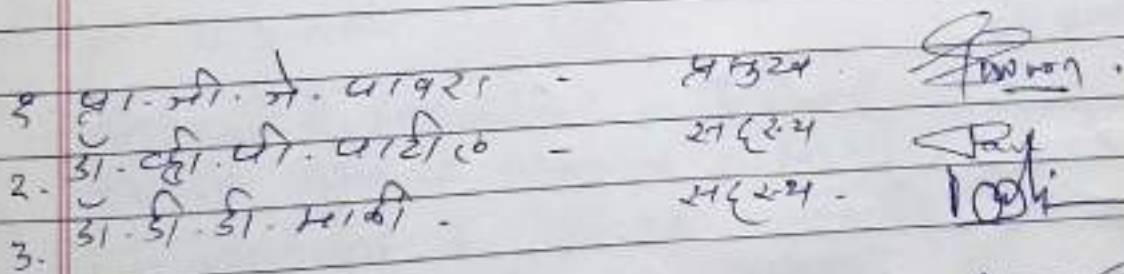 १ प्रा. जी. जे. पावरा - प्रमुख.
२. डॉ. व्ही. पी. पाटील - सदस्य
३. डॉ. डी. डी. माळी. सदस्य -